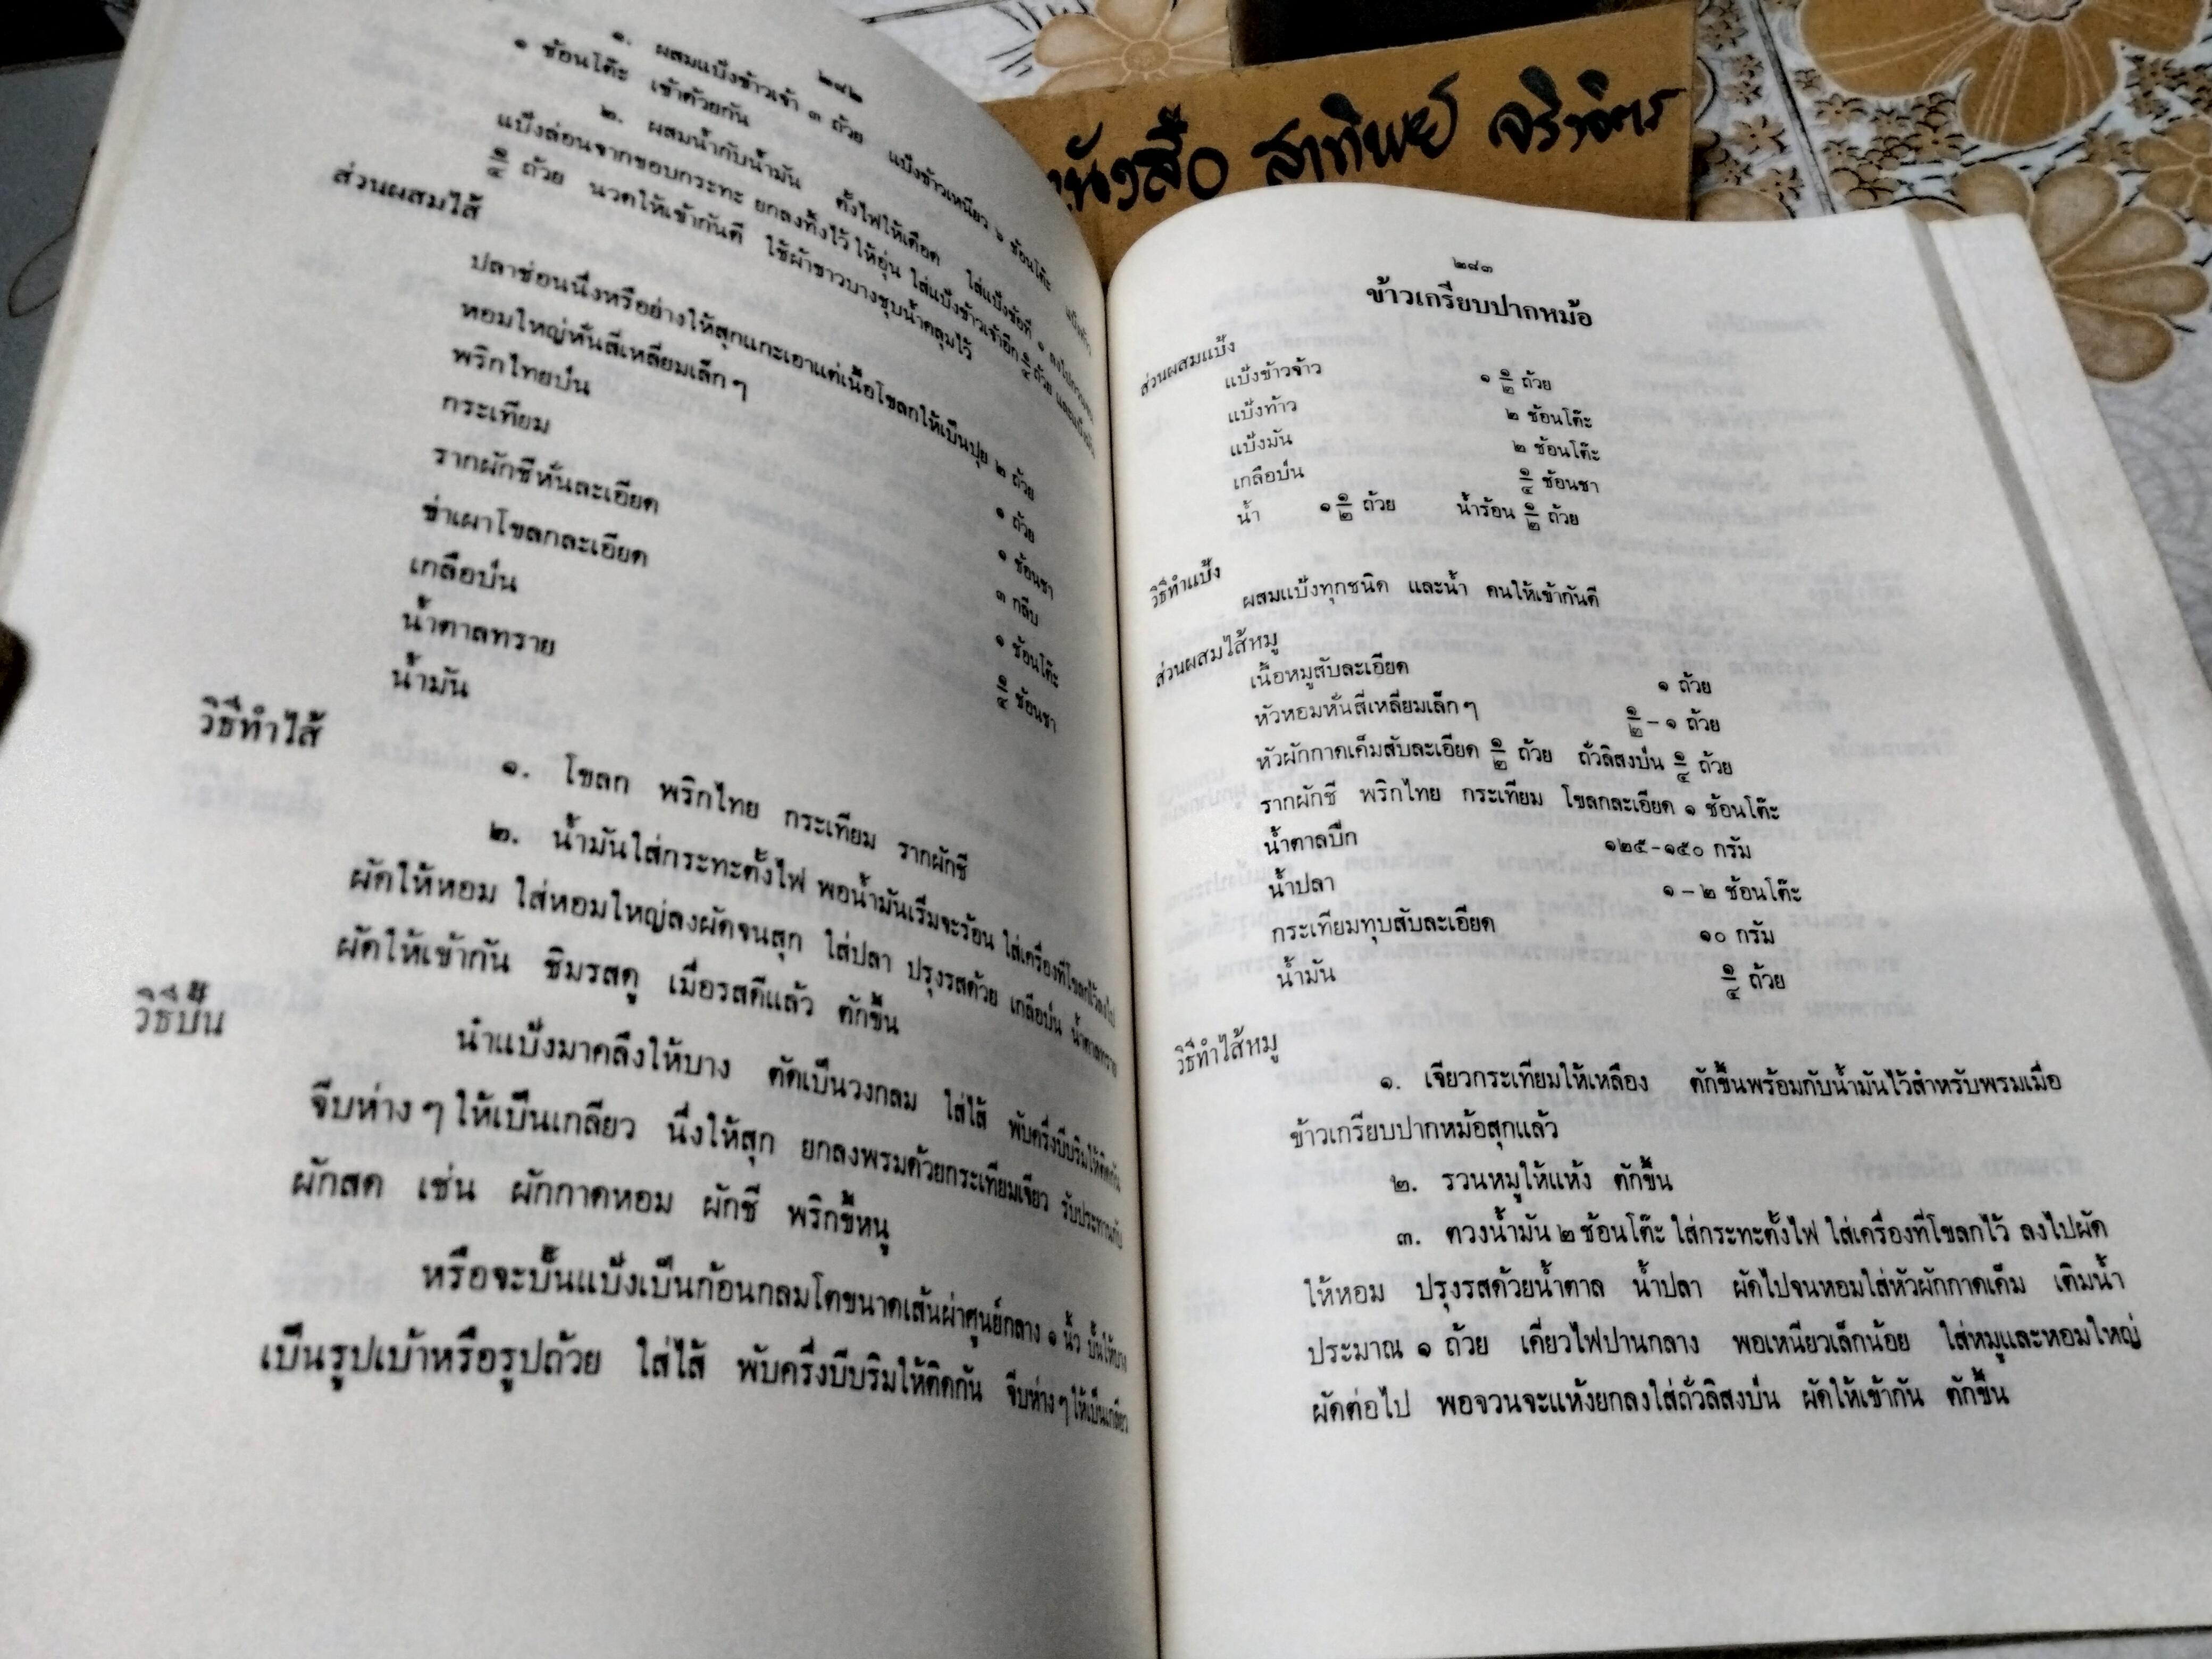 ๒๘๒
๑. ผสมแป้งข้าวเจ้า ๓ ถ้วย แป้งข้าวเหนียว ๖ ช้อนโต๊ะ
๑ ช้อนโต๊ะ เข้าด้วยกัน
๒. ผสมน้ำกับน้ำมัน ตั้งไฟให้เดือด ใส่แป้งข้อที่ ๑ ลงไปกวนจน
แป้งล่อนจากขอบกระทะ ยกลงทิ้งไว้ให้อุ่น ใส่แป้งข้าวเจ้าอีก ๑/๔ ถ้วย และแป้งมัน
๑/๔ ถ้วย นวดให้เข้ากันดี ใช้ผ้าขาวบางชุบน้ำคลุมไว้
ส่วนผสมไส้
ปลาช่อนนึ่งหรือย่างให้สุกแกะเอาแต่เนื้อโขลกให้เป็นปุย ๒ ถ้วย
หอมใหญ่หั่นสี่เหลี่ยมเล็กๆ ๑ ถ้วย
พริกไทยป่น ๑ ช้อนชา
กระเทียม ๓ กลีบ
รากผักชีหั่นละเอียด ๑ ช้อนโต๊ะ
ข่าเผาโขลกละเอียด ๑/๔ ช้อนชา
เกลือป่น
น้ำตาลทราย
น้ำมัน
วิธีทำไส้
๑. โขลก พริกไทย กระเทียม รากผักชี
๒. น้ำมันใส่กระทะตั้งไฟ พอน้ำมันเริ่มจะร้อน ใส่เครื่องที่โขลกไว้ลงไป
ผัดให้หอม ใส่หอมใหญ่ลงผัดจนสุก ใส่ปลา ปรุงรสด้วย เกลือป่น น้ำตาลทราย
ผัดให้เข้ากัน ชิมรสดู เมื่อรสดีแล้ว ตักขึ้น
วิธีปั้น
นำแป้งมาคลึงให้บาง ตัดเป็นวงกลม ใส่ไส้ พับครึ่งบีบริมให้ติดกัน
จีบห่างๆ ให้เป็นเกลียว นึ่งให้สุก ยกลงพรมด้วยกระเทียมเจียว รับประทานกับ
ผักสด เช่น ผักกาดหอม ผักชี พริกขี้หนู
หรือจะปั้นแป้งเป็นก้อนกลมโตขนาดเส้นผ่าศูนย์กลาง ๑ นิ้ว ปั้นให้บาง
เป็นรูปเบ้าหรือรูปถ้วย ใส่ไส้ พับครึ่งบีบริมให้ติดกัน จีบห่างๆ ให้เป็นเกลียว
หนังสือ สาทิพย์ จริงจิตร
๒๘๓
ข้าวเกรียบปากหม้อ
ส่วนผสมแป้ง
แป้งข้าวจ้าว ๑ ๑/๒ ถ้วย
แป้งท้าว ๒ ช้อนโต๊ะ
แป้งมัน ๒ ช้อนโต๊ะ
เกลือป่น ๑/๔ ช้อนชา
น้ำ ๑ ๑/๒ ถ้วย น้ำร้อน ๑/๒ ถ้วย
วิธีทำแป้ง
ผสมแป้งทุกชนิด และน้ำ คนให้เข้ากันดี
ส่วนผสมไส้หมู
เนื้อหมูสับละเอียด ๑ ถ้วย
หัวหอมหั่นสี่เหลี่ยมเล็กๆ ๑/๒ – ๑ ถ้วย
หัวผักกาดเค็มสับละเอียด ๑/๒ ถ้วย ถั่วลิสงป่น ๑/๔ ถ้วย
รากผักชี พริกไทย กระเทียม โขลกละเอียด ๑ ช้อนโต๊ะ
น้ำตาลปึก ๑๒๕–๑๕๐ กรัม
น้ำปลา ๑ – ๒ ช้อนโต๊ะ
กระเทียมทุบสับละเอียด ๑๐ กรัม
น้ำมัน ๑/๔ ถ้วย
วิธีทำไส้หมู
๑. เจียวกระเทียมให้เหลือง ตักขึ้นพร้อมกับน้ำมันไว้สำหรับพรมเมื่อ
ข้าวเกรียบปากหม้อสุกแล้ว
๒. รวนหมูให้แห้ง ตักขึ้น
๓. ตวงน้ำมัน ๒ ช้อนโต๊ะ ใส่กระทะตั้งไฟ ใส่เครื่องที่โขลกไว้ ลงไปผัด
ให้หอม ปรุงรสด้วยน้ำตาล น้ำปลา ผัดไปจนหอมใส่หัวผักกาดเค็ม เติมน้ำ
ประมาณ ๑ ถ้วย เคี่ยวไฟปานกลาง พอเหนียวเล็กน้อย ใส่หมูและหอมใหญ่
ผัดต่อไป พอจวนจะแห้งยกลงใส่ถั่วลิสงป่น ผัดให้เข้ากัน ตักขึ้น